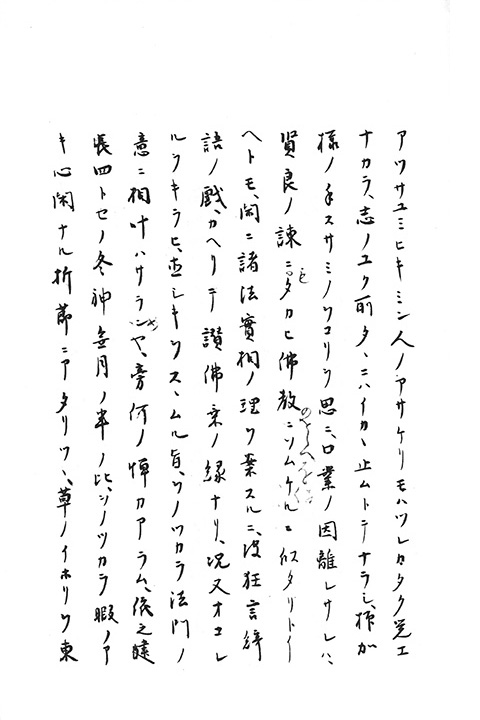 アツサユミヒキミン人ノアサケリモハツレカタク覚エ
ナカラ、志ノユク所タ、ニハイカ丶止ムトテナラシ、抑カ
様ノ手スサミノヲコリヲ思ニ、口業ノ因離レサレハ、
賢良ノ諫ニモタカヒ佛教ニソムケルニ似タリトイ
ヘトモ、閑ニ諸法實相ノ理ヲ案スルニ、彼狂言綺
語ノ戯、カヘリテ讃佛乗ノ縁ナリ、况又オコレ
ルヲキラヒ、直シキヲス丶ムル旨、ヲノツカラ法門ノ
意ニ相叶ハサランヤ、旁何ノ憚カアラム、依之建
長四トセノ冬神無月ノ半ノ比、ヲノツカラ暇ノア
キ心閑ナル折節ニアタリツ丶、草ノイホリヲ東